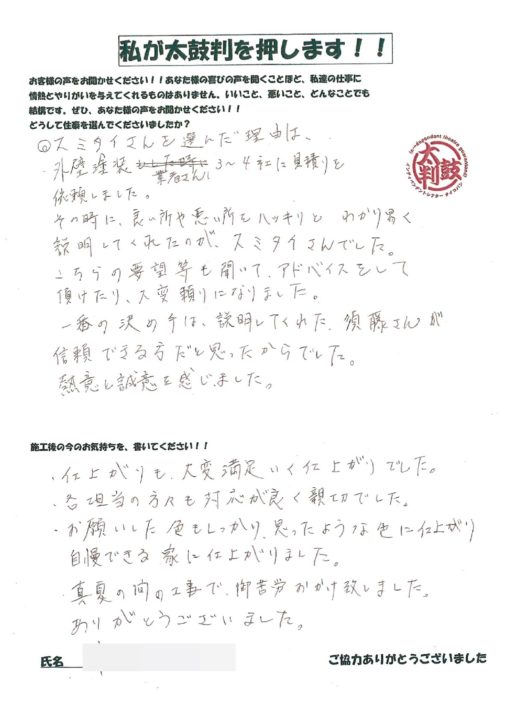 私が太鼓判を押します！！
お客様の声をお聞かせください！！あなた様の喜びの声を聞くことほど、私達の仕事に
情熱とやりがいを与えてくれるものはありません。いいこと、悪いこと、どんなことでも
結構です。ぜひ、あなた様の声をお聞かせください！！
どうして住泰を選んでくださいましたか？
◎スミタイさんを選んだ理由は、
・外壁塗装 業者さん 3～4社に見積りを
依頼しました。
その時に、良い所や悪い所もハッキリと わかり易く
説明してくれたのが、スミタイさんでした。
こちらの要望等も聞いて、アドバイスをして
頂けたり、大変頼りになりました。
一番の決め手は、説明してくれた、須藤さんが
信頼できる方だと思ったからでした。
熱意と誠意を感じました。
太鼓判
施工後の今のお気持ちを、書いてください！！
・仕上がりも、大変満足いく仕上がりでした。
・各担当の方々も対応が良く親切でした。
・お願いした色もしっかり、思ったような色に仕上がり
自慢できる家に仕上がりました。
・真夏の間の工事で、御苦労おかけ致しました。
ありがとうございました。
氏名
ご協力ありがとうございました